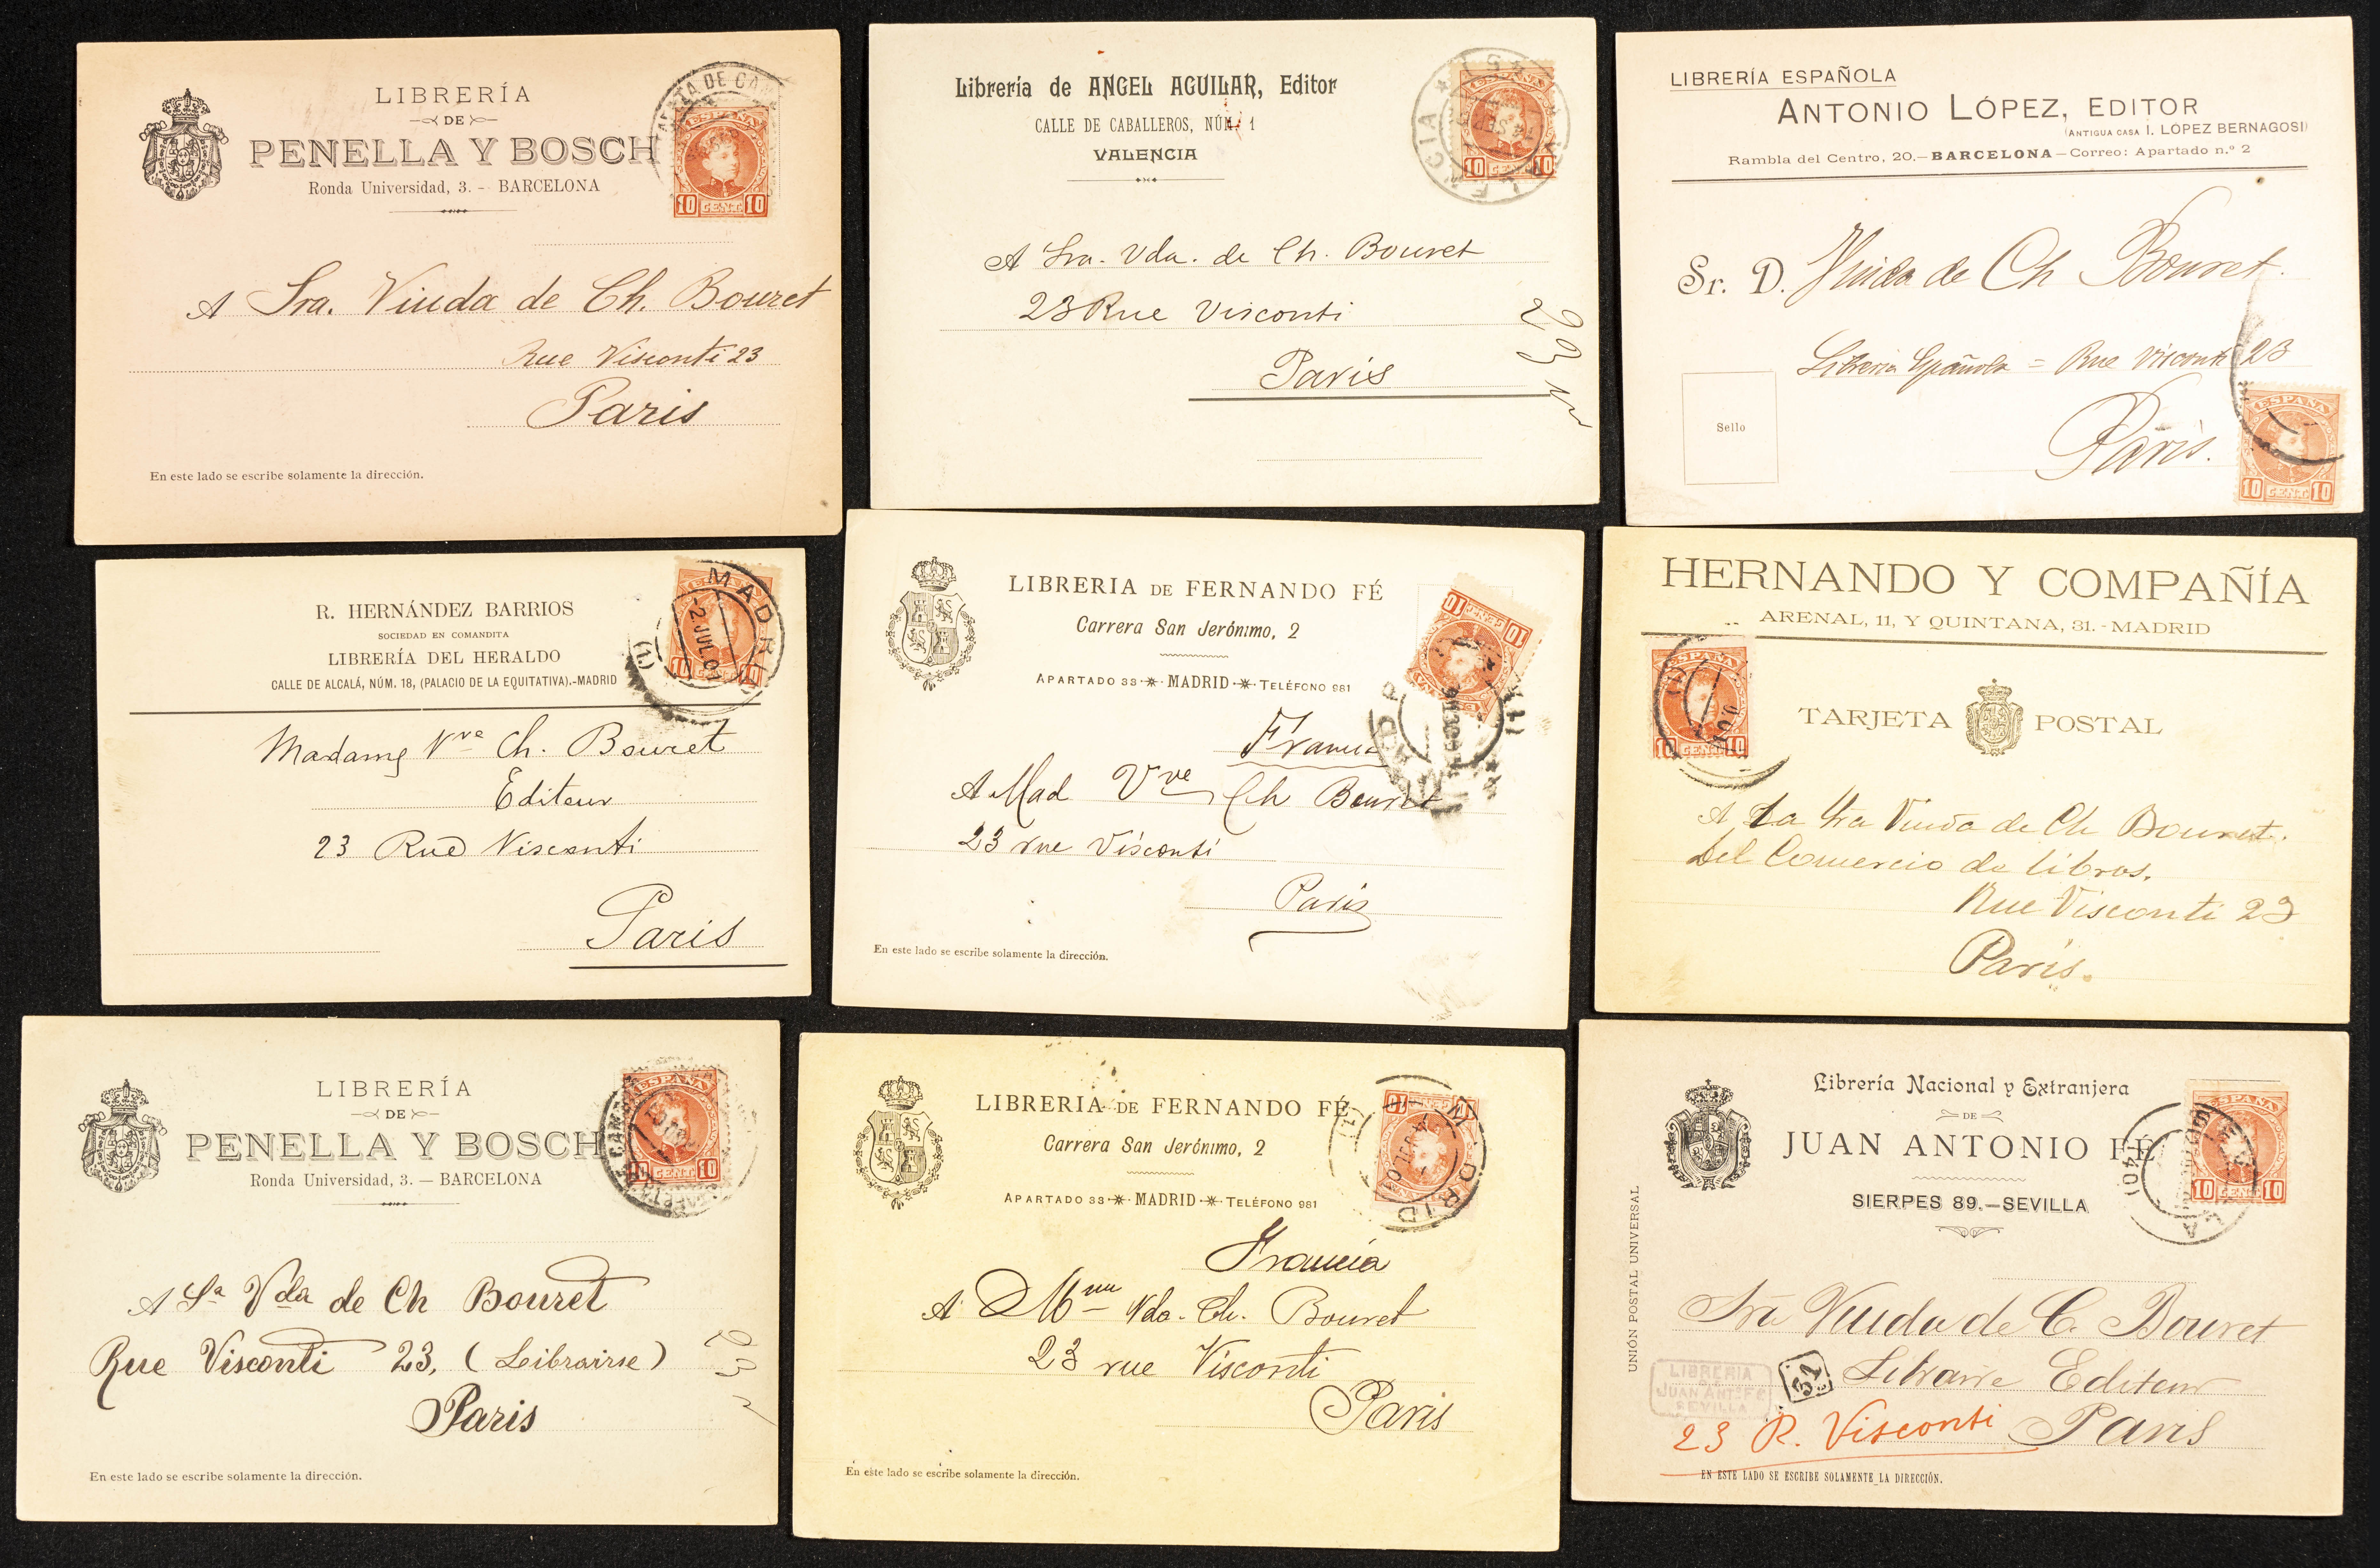 LIBRERÍA
DE
PENELLA Y BOSCH
Ronda Universidad, 3. - BARCELONA
ESPAÑA
10 CENT. 10
A Sra. Viuda de Ch. Bouret
Rue Visconti 23
Paris
En este lado se escribe solamente la dirección.
Librería de ANGEL AGUILAR, Editor
CALLE DE CABALLEROS, NÚM. 1
VALENCIA
ESPAÑA
10 CENT. 10
A Sra. Vda. de Ch. Bouret
23 Rue Visconti
Paris
LIBRERÍA ESPAÑOLA
ANTONIO LÓPEZ, EDITOR
(ANTIGUA CASA I. LÓPEZ BERNAGOSI)
Rambla del Centro, 20.-BARCELONA-Correo: Apartado n.º 2
Sr. D. Viuda de Ch Bouret.
Libreria Española = Rue Visconti 23
Sello
Paris.
ESPAÑA
10 CENT. 10
R. HERNÁNDEZ BARRIOS
SOCIEDAD EN COMANDITA
LIBRERÍA DEL HERALDO
CALLE DE ALCALÁ, NÚM. 18, (PALACIO DE LA EQUITATIVA).-MADRID
MADRID
-2 JUL 01
(1)
Madame Vve Ch. Bouret
Editeur
23 Rue Visconti
Paris
LIBRERIA DE FERNANDO FÉ
Carrera San Jerónimo, 2
APARTADO 33 MADRID TELÉFONO 981
10 CENT. 10
Francia
A Mad Vve Ch Bouret
23 rue Visconti
Paris
En este lado se escribe solamente la dirección.
HERNANDO Y COMPAÑÍA
ARENAL, 11, Y QUINTANA, 31.-MADRID
ESPAÑA
10 CENT. 10
TARJETA POSTAL
A La Sra Viuda de Ch Bouret.
Del Comercio de libros.
Rue Visconti 23
Paris.
LIBRERÍA
DE
PENELLA Y BOSCH
Ronda Universidad, 3. — BARCELONA
ESPAÑA
10 CENT. 10
A Sa Vda de Ch Bouret
Rue Visconti 23, (Leibrairie)
Paris
En este lado se escribe solamente la dirección.
LIBRERIA DE FERNANDO FÉ
Carrera San Jerónimo, 2
APARTADO 33 MADRID TELÉFONO 981
Francia
A Mme Vda. Ch. Bouret
23 rue Visconti
Paris
En este lado se escribe solamente la dirección.
Librería Nacional y Extranjera
DE
JUAN ANTONIO FÉ
SIERPES 89.—SEVILLA
ESPAÑA
10 CENT. 10
UNIÓN POSTAL UNIVERSAL
Sra Viuda de C. Bouret
Libraire Editeur
LIBRERIA
DE
JUAN ANTº FÉ
SEVILLA
51
23 R. Visconti Paris
EN ESTE LADO SE ESCRIBE SOLAMENTE LA DIRECCIÓN.